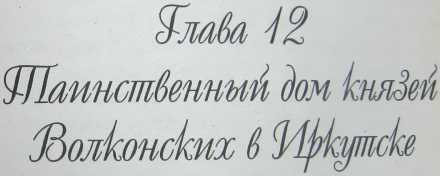 Глава 12
Таинственный дом князей
Волконских в Иркутске